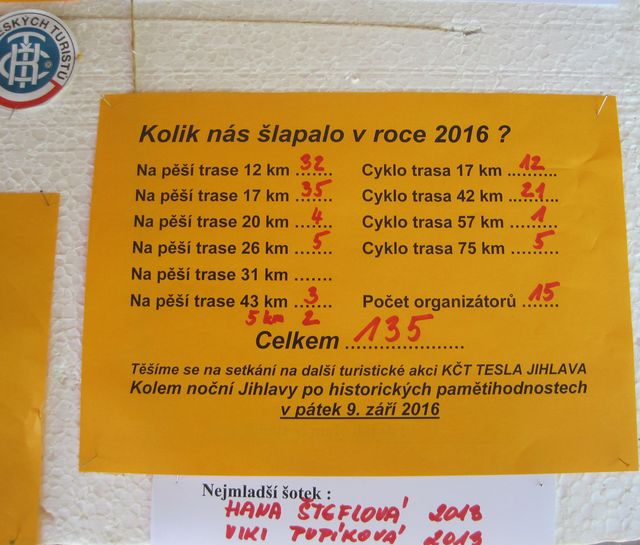 ČESKÝCH TURISTŮ
Kolik nás šlapalo v roce 2016 ?
Na pěší trase 12 km 32 Cyklo trasa 17 km 12
Na pěší trase 17 km 35 Cyklo trasa 42 km 21
Na pěší trase 20 km 4 Cyklo trasa 57 km 1
Na pěší trase 26 km 5 Cyklo trasa 75 km 5
Na pěší trase 31 km .......
Na pěší trase 43 km 3 Počet organizátorů 15
5 km 2
Celkem 135
Těšíme se na setkání na další turistické akci KČT TESLA JIHLAVA
Kolem noční Jihlavy po historických pamětihodnostech
v pátek 9. září 2016
Nejmladší šotek :
HANA ŠTEFLOVÁ 2013
VIKI TUPÍKOVÁ 2013